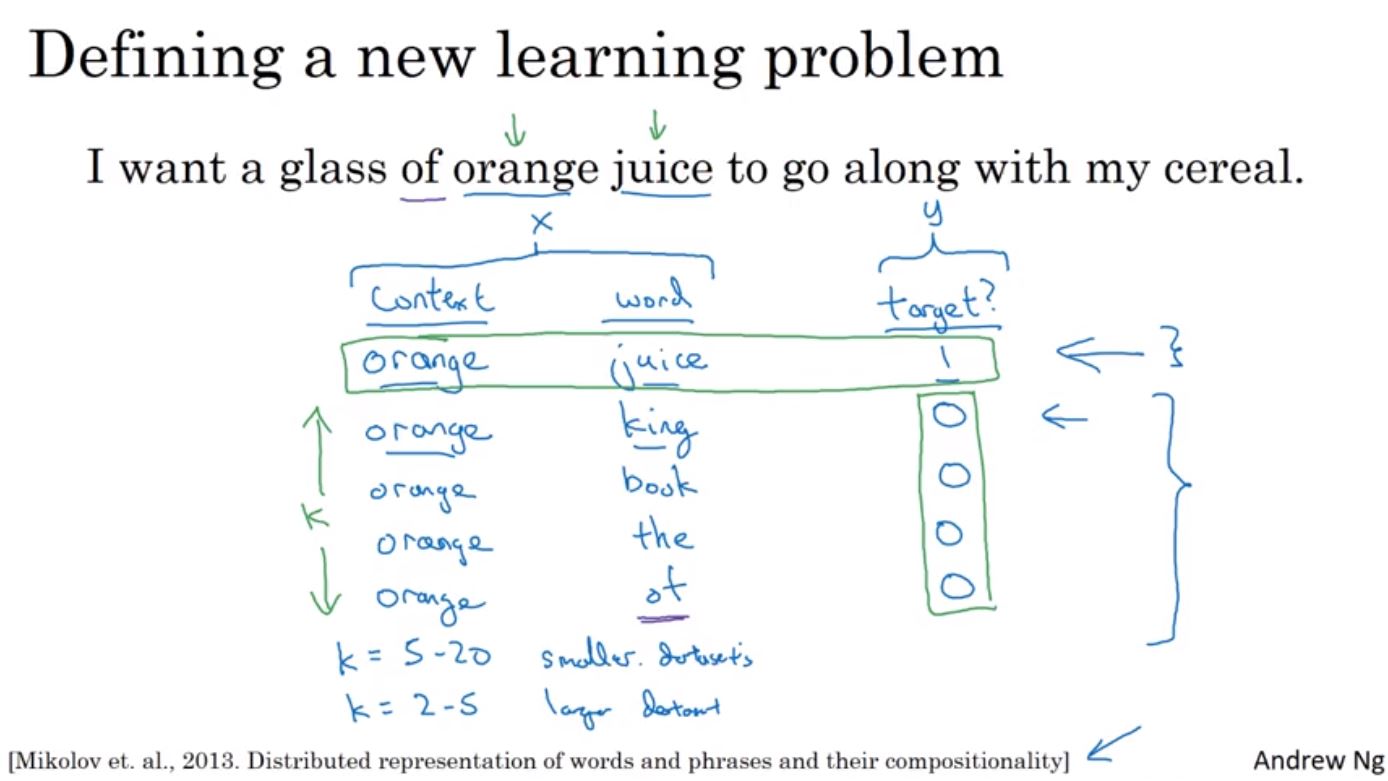 Defining a new learning problem
I want a glass of orange juice to go along with my cereal.
x y
context word target?
orange juice 1
orange king 0
orange book 0
k orange the 0
orange of 0
k = 5-20 smaller datasets
k = 2-5 larger dataset
[Mikolov et. al., 2013. Distributed representation of words and phrases and their compositionality] Andrew Ng